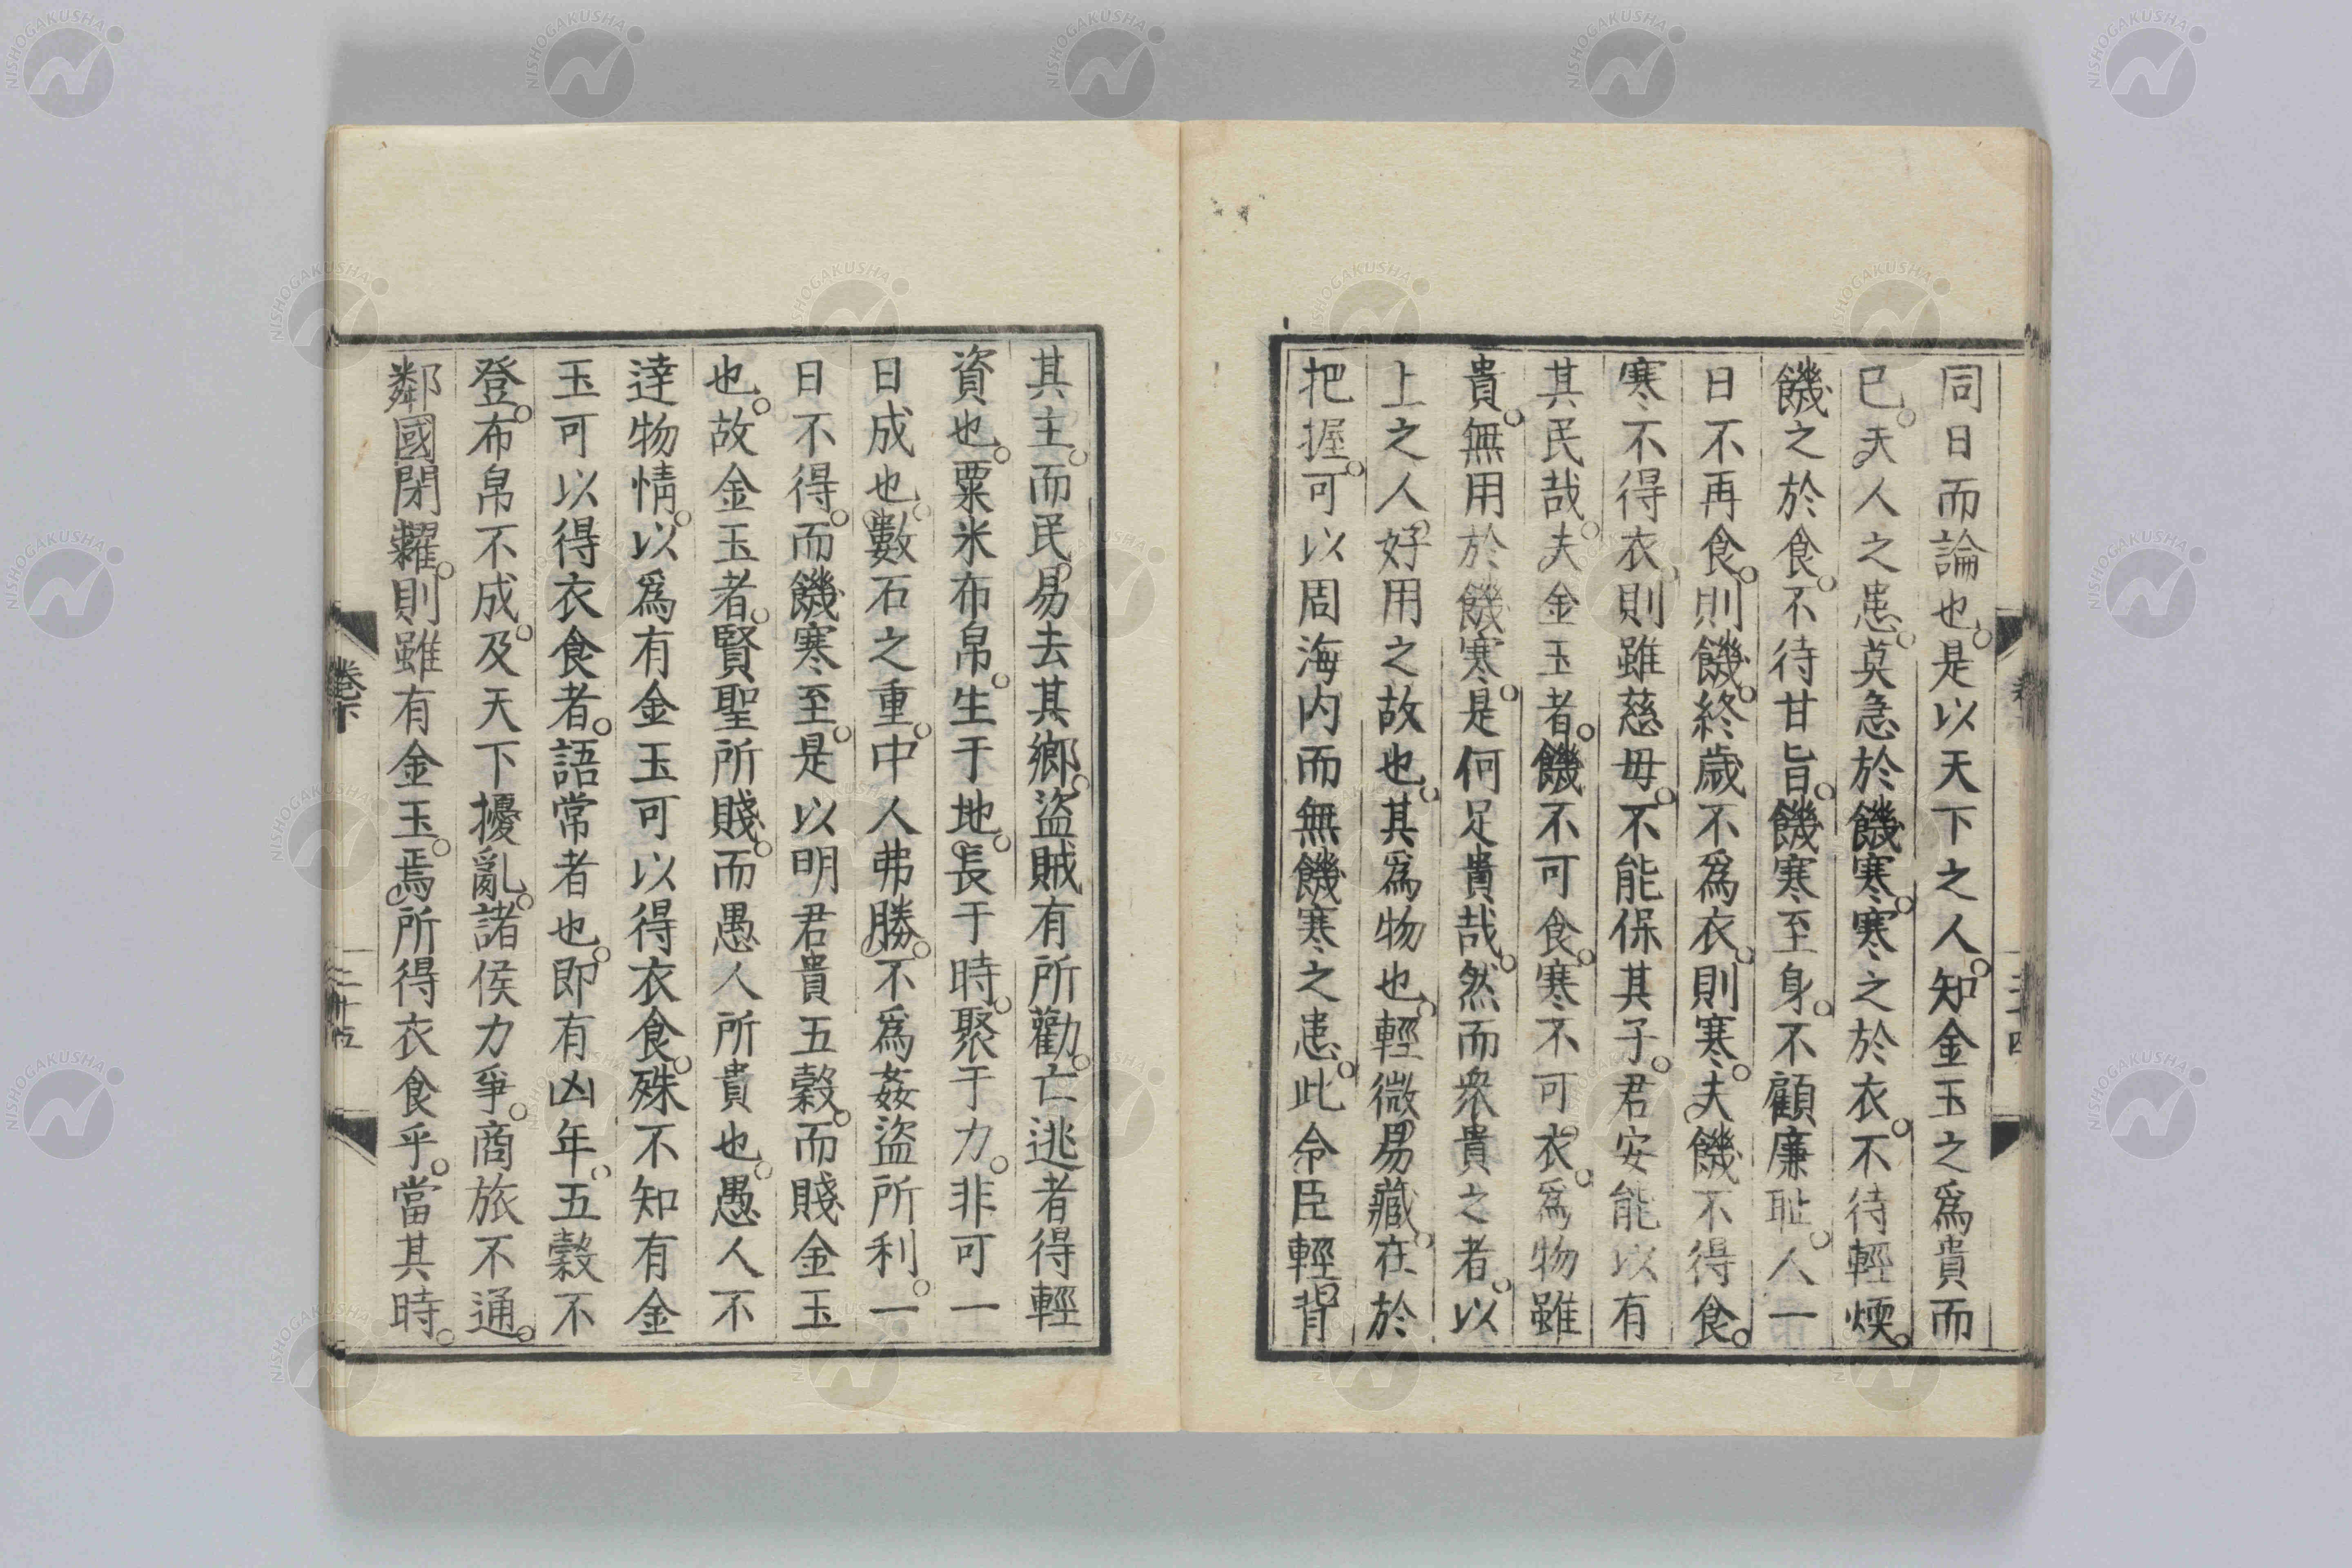 同日而論也。是以天下之人。知金玉之爲貴而
已。夫人之患。莫急於饑寒。寒之於衣。不待輕煖。
饑之於食。不待甘旨。饑寒至身。不顧廉耻。人一
日不再食。則饑。終歲不爲衣。則寒。夫饑不得食。
寒不得衣。則雖慈母。不能保其子。君安能以有
其民哉。夫金玉者。饑不可食。寒不可衣。爲物雖
貴。無用於饑寒。是何足貴哉。然而衆貴之者。以
上之人。好用之故也。其爲物也。輕微易藏。在於
把握。可以周海内而無饑寒之患。此令臣輕背
其主。而民。易去其鄉。盜賊有所勸。亡逃者得輕
資也。粟米布帛。生于地。長于時。聚于力。非可一
日成也。數石之重。中人弗勝。不爲姦盜所利。一
日不得。而饑寒至。是以明君貴五穀。而賤金玉
也。故金玉者。賢聖所賤。而愚人所貴也。愚人不
達物情。以爲有金玉可以得衣食。殊不知有金
玉可以得衣食者。語常者也。即有凶年。五穀不
登。布帛不成。及天下擾亂。諸侯力爭。商旅不通。
鄰國閉糶。則雖有金玉。焉所得衣食乎。當其時。
卷下
二十五
NISHOGAKUSHA